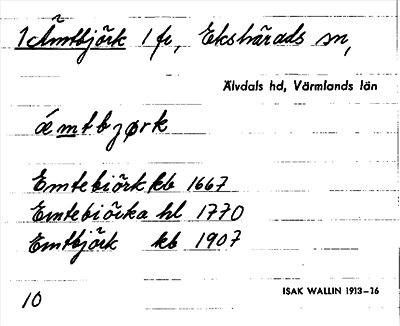 1 Ämtbjörk 1 fr, Ekshärads sn,
Älvdals hd, Värmlands län
ǽmtbjørk
Emtebiörk kb 1667
Emtebiöcka hl 1770
Emtbjörk kb 1907
10
ISAK WALLIN 1913-16